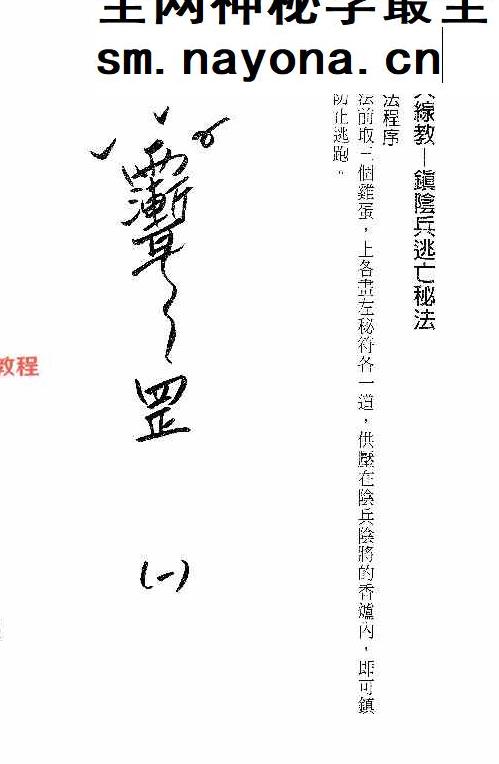 全网神秘学最全
sm.nayona.cn
六線教－鎮陰兵逃亡秘法
法程序
法前取三個雞蛋，上各畫左秘符各一道，供壓在陰兵陰將的香爐內，即可鎮
防止逃跑。
罡
(一)
教程